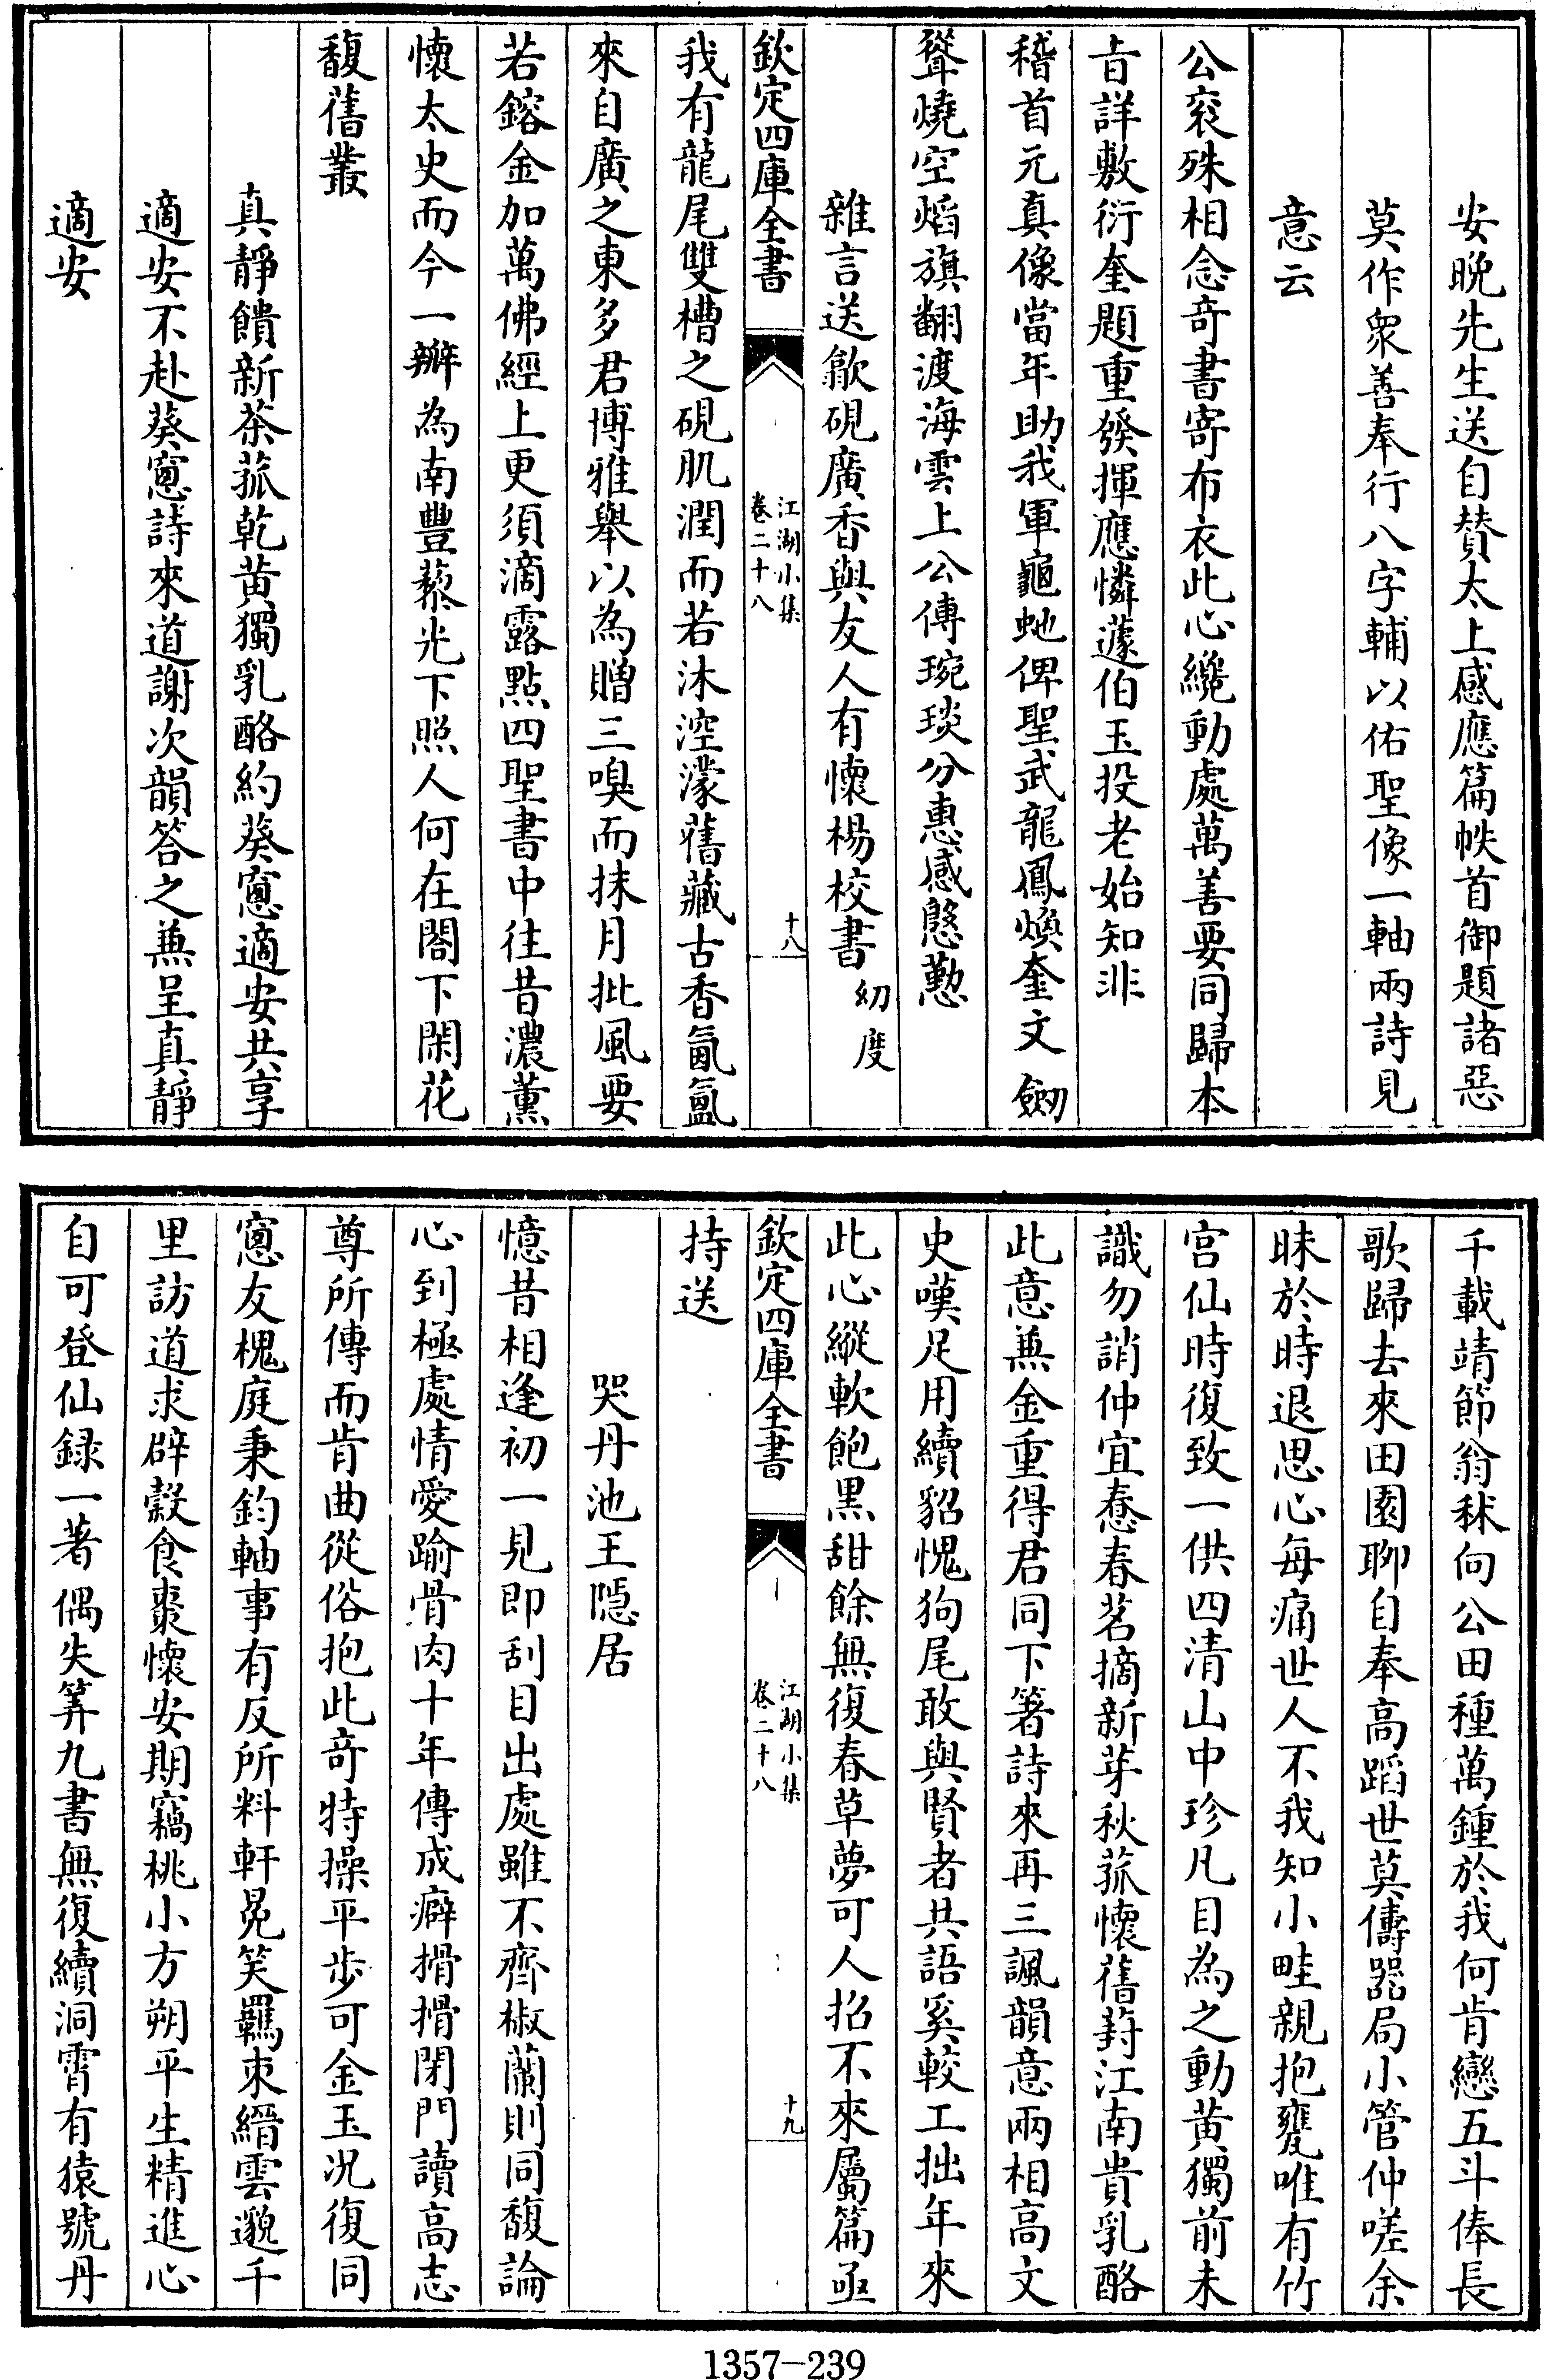 安晚先生送自賛太上感應篇帙首御題諸惡
莫作衆善奉行八字輔以佑聖像一軸兩詩見
意云
公衮殊相念竒書寄布衣此心纔動處萬善要同歸本
㫖詳敷衍奎題重發揮應憐蘧伯玉投老始知非
稽首元真像當年助我軍龜虵俾聖武龍鳳煥奎文劒
聳燒空焰旗翻渡海雲上公傳琬琰分惠感慇懃
雜言送歙硯廣香與友人有懷楊校書 㓜度
欽定四庫全書
江湖小集
卷二十八
十八
我有龍尾雙槽之硯肌潤而若沐涳濛舊藏古香氤氲
來自廣之東多君博雅舉以為贈三嗅而抹月批風要
若鎔金加萬佛經上更須滴露點四聖書中往昔濃薫
懷太史而今一瓣為南豐藜光下照人何在閣下閑花
馥舊叢
真靜饋新茶菰乾黄獨乳酪約葵窻適安共享
適安不赴葵窻詩來道謝次韻答之兼呈真靜
適安
千載靖節翁秫向公田種萬鍾於我何肯戀五斗俸長
歌歸去來田園聊自奉高蹈世莫儔器局小管仲嗟余
昧於時退思心每痛世人不我知小畦親抱甕唯有竹
宫仙時復致一供四清山中珍凡目為之動黄獨前未
識勿誚仲宜憃春茗摘新芽秋菰懐舊葑江南貴乳酪
此意兼金重得君同下箸詩來再三諷韻意兩相高文
史嘆足用續貂愧狗尾敢與賢者共語奚較工拙年來
此心縱軟飽黒甜餘無復春草夢可人招不來屬篇亟
欽定四庫全書
江湖小集
卷二十八
十九
持送
哭丹池王隠居
憶昔相逢初一見即刮目出處雖不齊椒蘭則同馥論
心到極處情愛踰骨肉十年傳成癖搰搰閉門讀高志
尊所傳而肯曲從俗抱此竒特操平步可金玉况復同
窻友槐庭秉鈞軸事有反所料軒冕笑羈束縉雲邈千
里訪道求辟穀食棗懷安期竊桃小方朔平生精進心
自可登仙録一著偶失筭九書無復續洞霄有猿號丹
1357—239